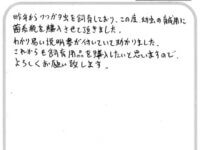 昨年からクワガタ虫を飼育しており、この度 幼虫の飼育用に
菌糸瓶を購入させて頂きました。
わかり易い説明書が付いていて助かりました。
これからも飼育用品を購入したいと思いますので、
よろしくお願い致します。